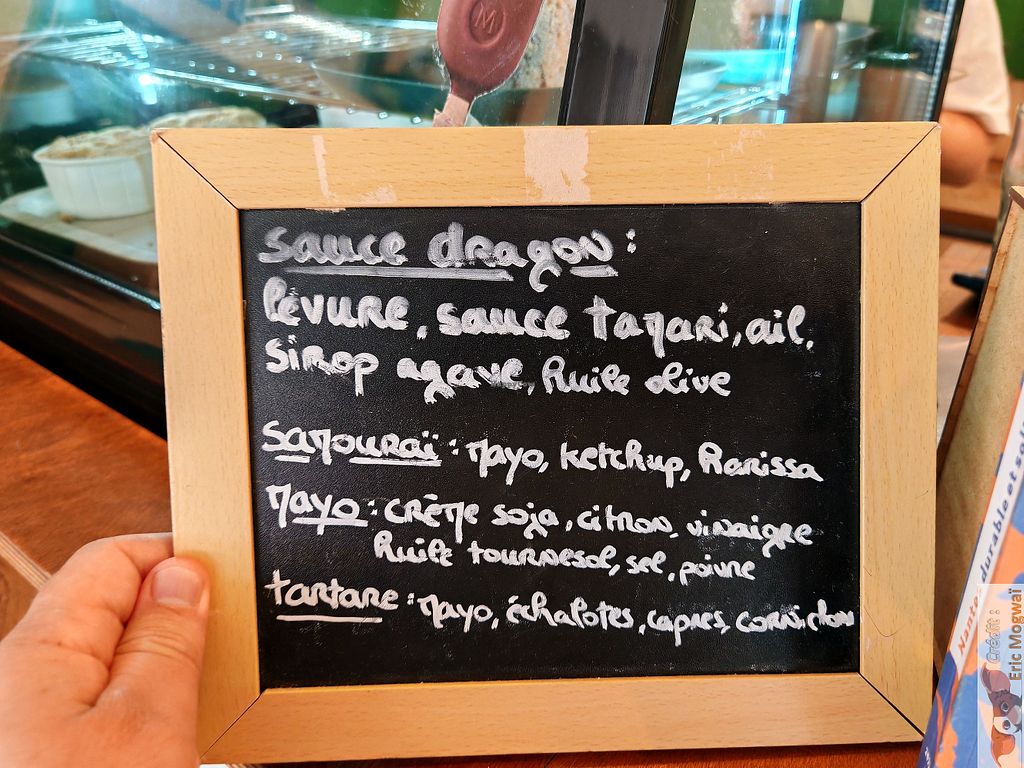 M
sauce dragon :
levure, sauce tamari, ail,
sirop agave, huile olive
samouraï : mayo, ketchup, harissa
mayo : crème soja, citron, vinaigre
huile tournesol, sel, poivre
tartare : mayo, échalotes, capres, cornichon
Nantes durable et sol
Crédit :
Eric Mogwaï